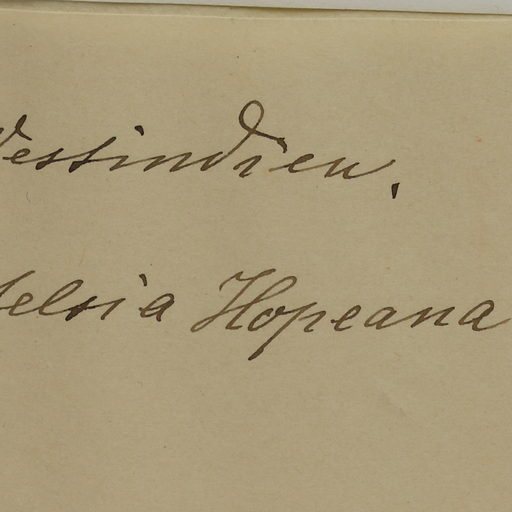 Vessindien.
elsia Hopeana